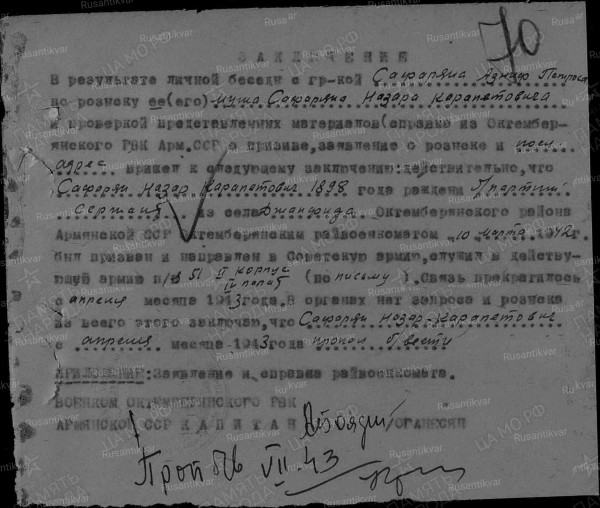 70
ЗАКЛЮЧЕНИЕ
В результате личной беседы с гр-кой Сафоряна Азниф Петрося
по розыску ее(его) мужа Сафоряна Назара Карапетовича
проверкой представленных материалов(справка из Октембер-
янского РВК Арм.ССР о призыве,заявление о розыске и посл.
адрес пришел к следующему заключению:действительно,что
Сафорян Назар Карапетович 1898 года рождения
сержант из села Джанфида Октемберянского района
Армянской ССР Октемберянским райвоенкоматом 10 марта 1942г.
был призван и направлен в Советскую армию,служил в действу-
ющую армию п/я 51 II корпус (по письму).Связь прекратилось
с апреля месяца 1943года.В органах нет запроса и розыска
из всего этого заключаю,что Сафорян Назар Карапетович
с апреля месяца 1943года пропал б/вести
ПРИЛОЖЕНИЕ:Заявление и справка райвоенкомата.
ВОЕНКОМ ОКТЕМБЕРЯНСКОГО РВК
АРМЯНСКОЙ ССР КАПИТАН /ОГАНЕСЯН
Проп б/в VII.43